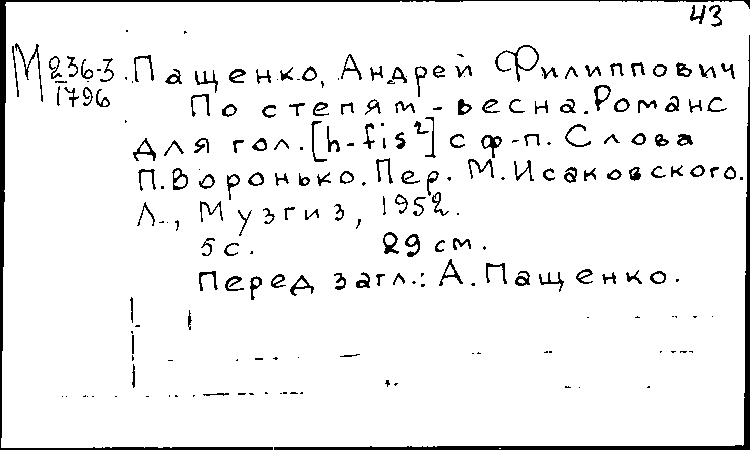 43
М 236-3 Пащенко, Андрей Филиппович
1796 По степям - весна. Романс
для гол. [h-fis²] с ф-п. Слова
П. Воронько. Пер. М. Исаковского.
Л., Музгиз, 1952.
5 с. 29 см.
Перед загл.: А. Пащенко.